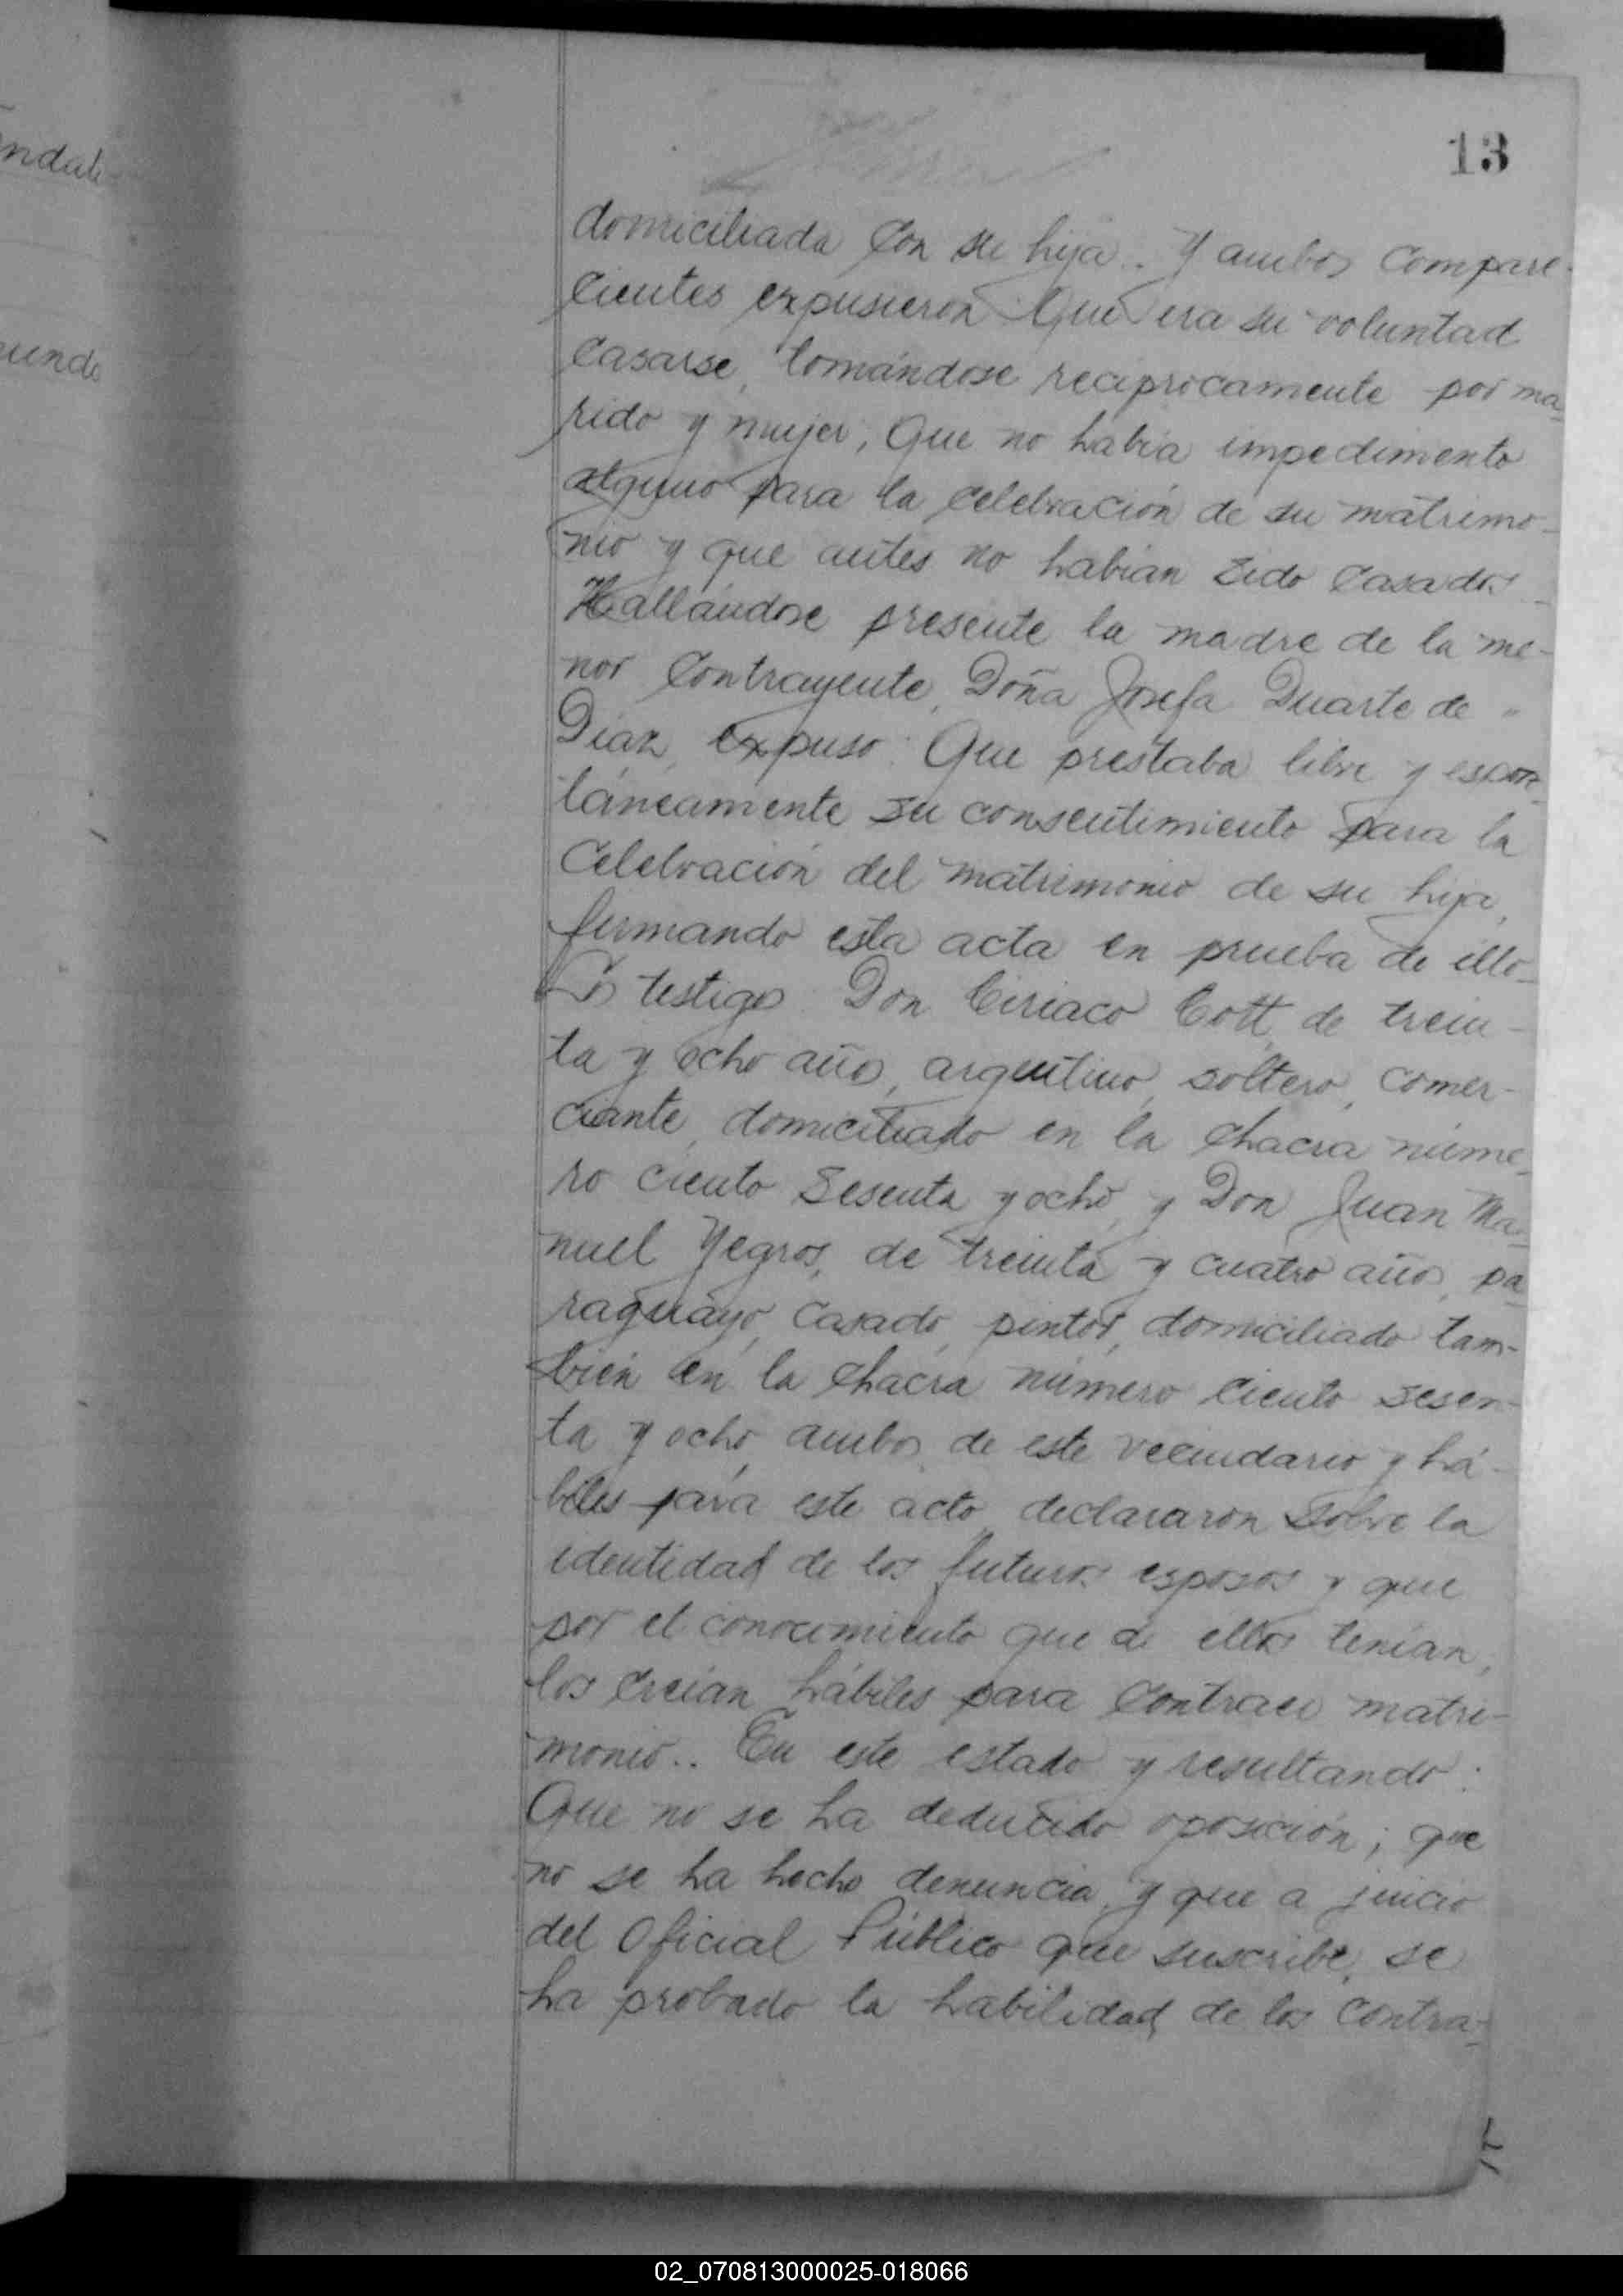 13
domiciliada con su hija.. Y ambos compare-
cientes expusieron: Que era su voluntad
casarse, tomándose reciprocamente por ma-
rido y mujer; Que no habia impedimento
alguno para la celebración de su matrimo-
nio y que antes no habian sido casados
Hallándose presente la madre de la me-
nor contrayente, Doña Josefa Duarte de
Diaz, expuso: Que prestaba libre y espon-
táneamente su consentimiento para la
celebración del matrimonio de su hija,
firmando esta acta en prueba de ello-
Los testigos: Don Ciriaco Cott, de trein-
ta y ocho años, argentino, soltero, comer-
ciante, domiciliado en la chacra núme-
ro ciento sesenta y ocho, y Don Juan Ma-
nuel Yegros, de treinta y cuatro años, pa-
raguayo, casado, pintor, domiciliado tam-
bién en la chacra número ciento sesen-
ta y ocho, ambos de este vecindario y há-
biles para este acto, declararon sobre la
identidad de los futuros esposos y que
por el conocimiento que de ellos tenian,
los creian hábiles para contraer matri-
monio.. En este estado y resultando:
Que no se ha deducido oposición; que
no se ha hecho denuncia, y que a juicio
del Oficial Público que suscribe, se
ha probado la habilidad de los contra-
ndali
undo
02_070813000025-018066